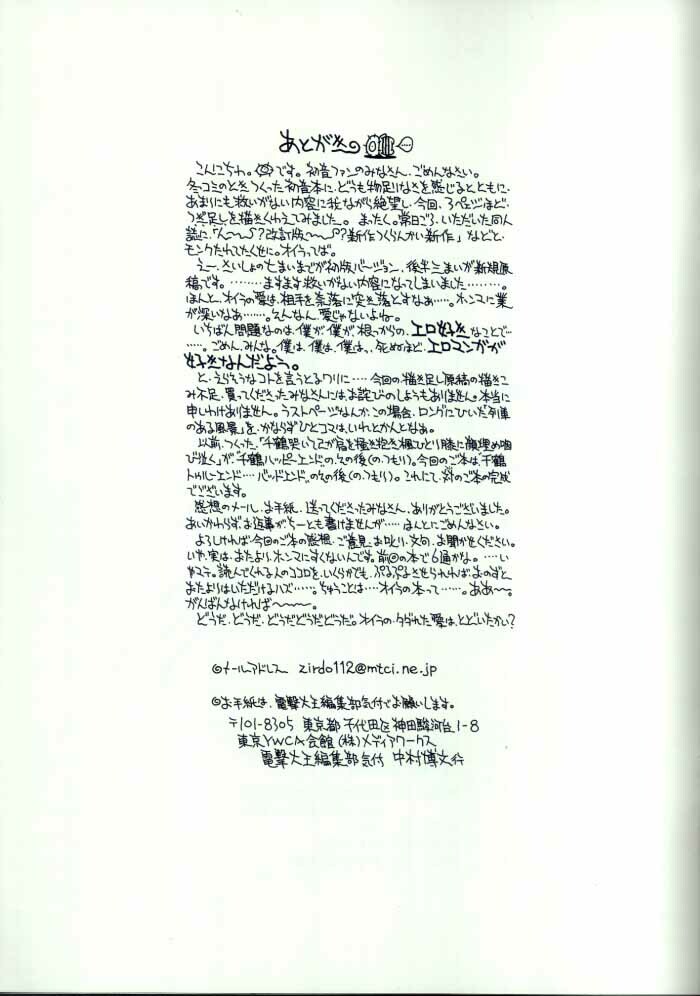 あとがき
こんにちわ。です。初音ファンのみなさん、ごめんなさい。
冬コミのときつくった初音本に、どうも物足りなさを感じるとともに、
あまりにも救いがない内容に我ながら絶望し、今回、3ページほど、
つぎ足しを描きくわえてみました。まったく。常日ごろ、いただいた同人
誌に、「んー?改訂版ー??新作つくらんかい新作」などと、
モンクたれてたくせに。オイラってば。
えー、さいしょの七まいまでが初版バージョン、後半三まいが新規原
稿です。………ますます救いがない内容になってしまいました………。
ほんと、オイラの愛は、相手を奈落に突き落とすなあ……。ホンマに業
が深いなあ……。そんなん、愛じゃないよね。
いちばん問題なのは、僕が、僕が、根っからの、エロ好きなことで…
……。ごめん、みんな。僕は、僕は、僕は、、死ぬほど、エロマンガが
好きなんだよう。
と、えらそうなコトを言うとるワリに……今回の、描き足し原稿の描きこ
み不足、買ってくださったみなさんには、お詫びのしようもありません。本当に
申しわけありません。ラストページなんか、この場合、ロングにひいた列車
のある風景を、かならずひとコマは、いれとかんとなあ。
以前、つくった、「千鶴哭いて己が肩を掻き抱き楓ひとり膝に顔埋め咽
び泣く」が、千鶴ハッピーエンドの、その後(の、つもり)。今回のご本は、千鶴
トゥルーエンド…バッドエンドのその後(の、つもり)。これにて、対のご本の完成
でございます。
感想のメール、お手紙、送ってくださったみなさん、ありがとうございました。
あいかわらず、お返事が、ちーとも書けませんが……ほんとにごめんなさい。
よろしければ、今回のご本の感想、ご意見、お叱り、文句、お聞かせください。
いや、実は、おたより、ホンマにすくないんです。前回の本で6通かな。……い
やマテ。読んでくれる人のココロを、いくらかでも、ぷるぷるさせられれば、おのずと、
おたよりはいただけるハズ……。ちゅうことは…オイラの本って……。ああ〜。
がんばんなければ〜〜〜。
どうだ、どうだ、どうだどうだどうだ。オイラの、タダれた愛は、とどいたかい?
◎メールアドレス zirdo112@mtci.ne.jp
◎お手紙は、電撃大王編集部気付でお願いします。
〒101-8305 東京都千代田区神田駿河台1-8
東京YWCA会館(株)メディアワークス
電撃大王編集部気付 中村博文行